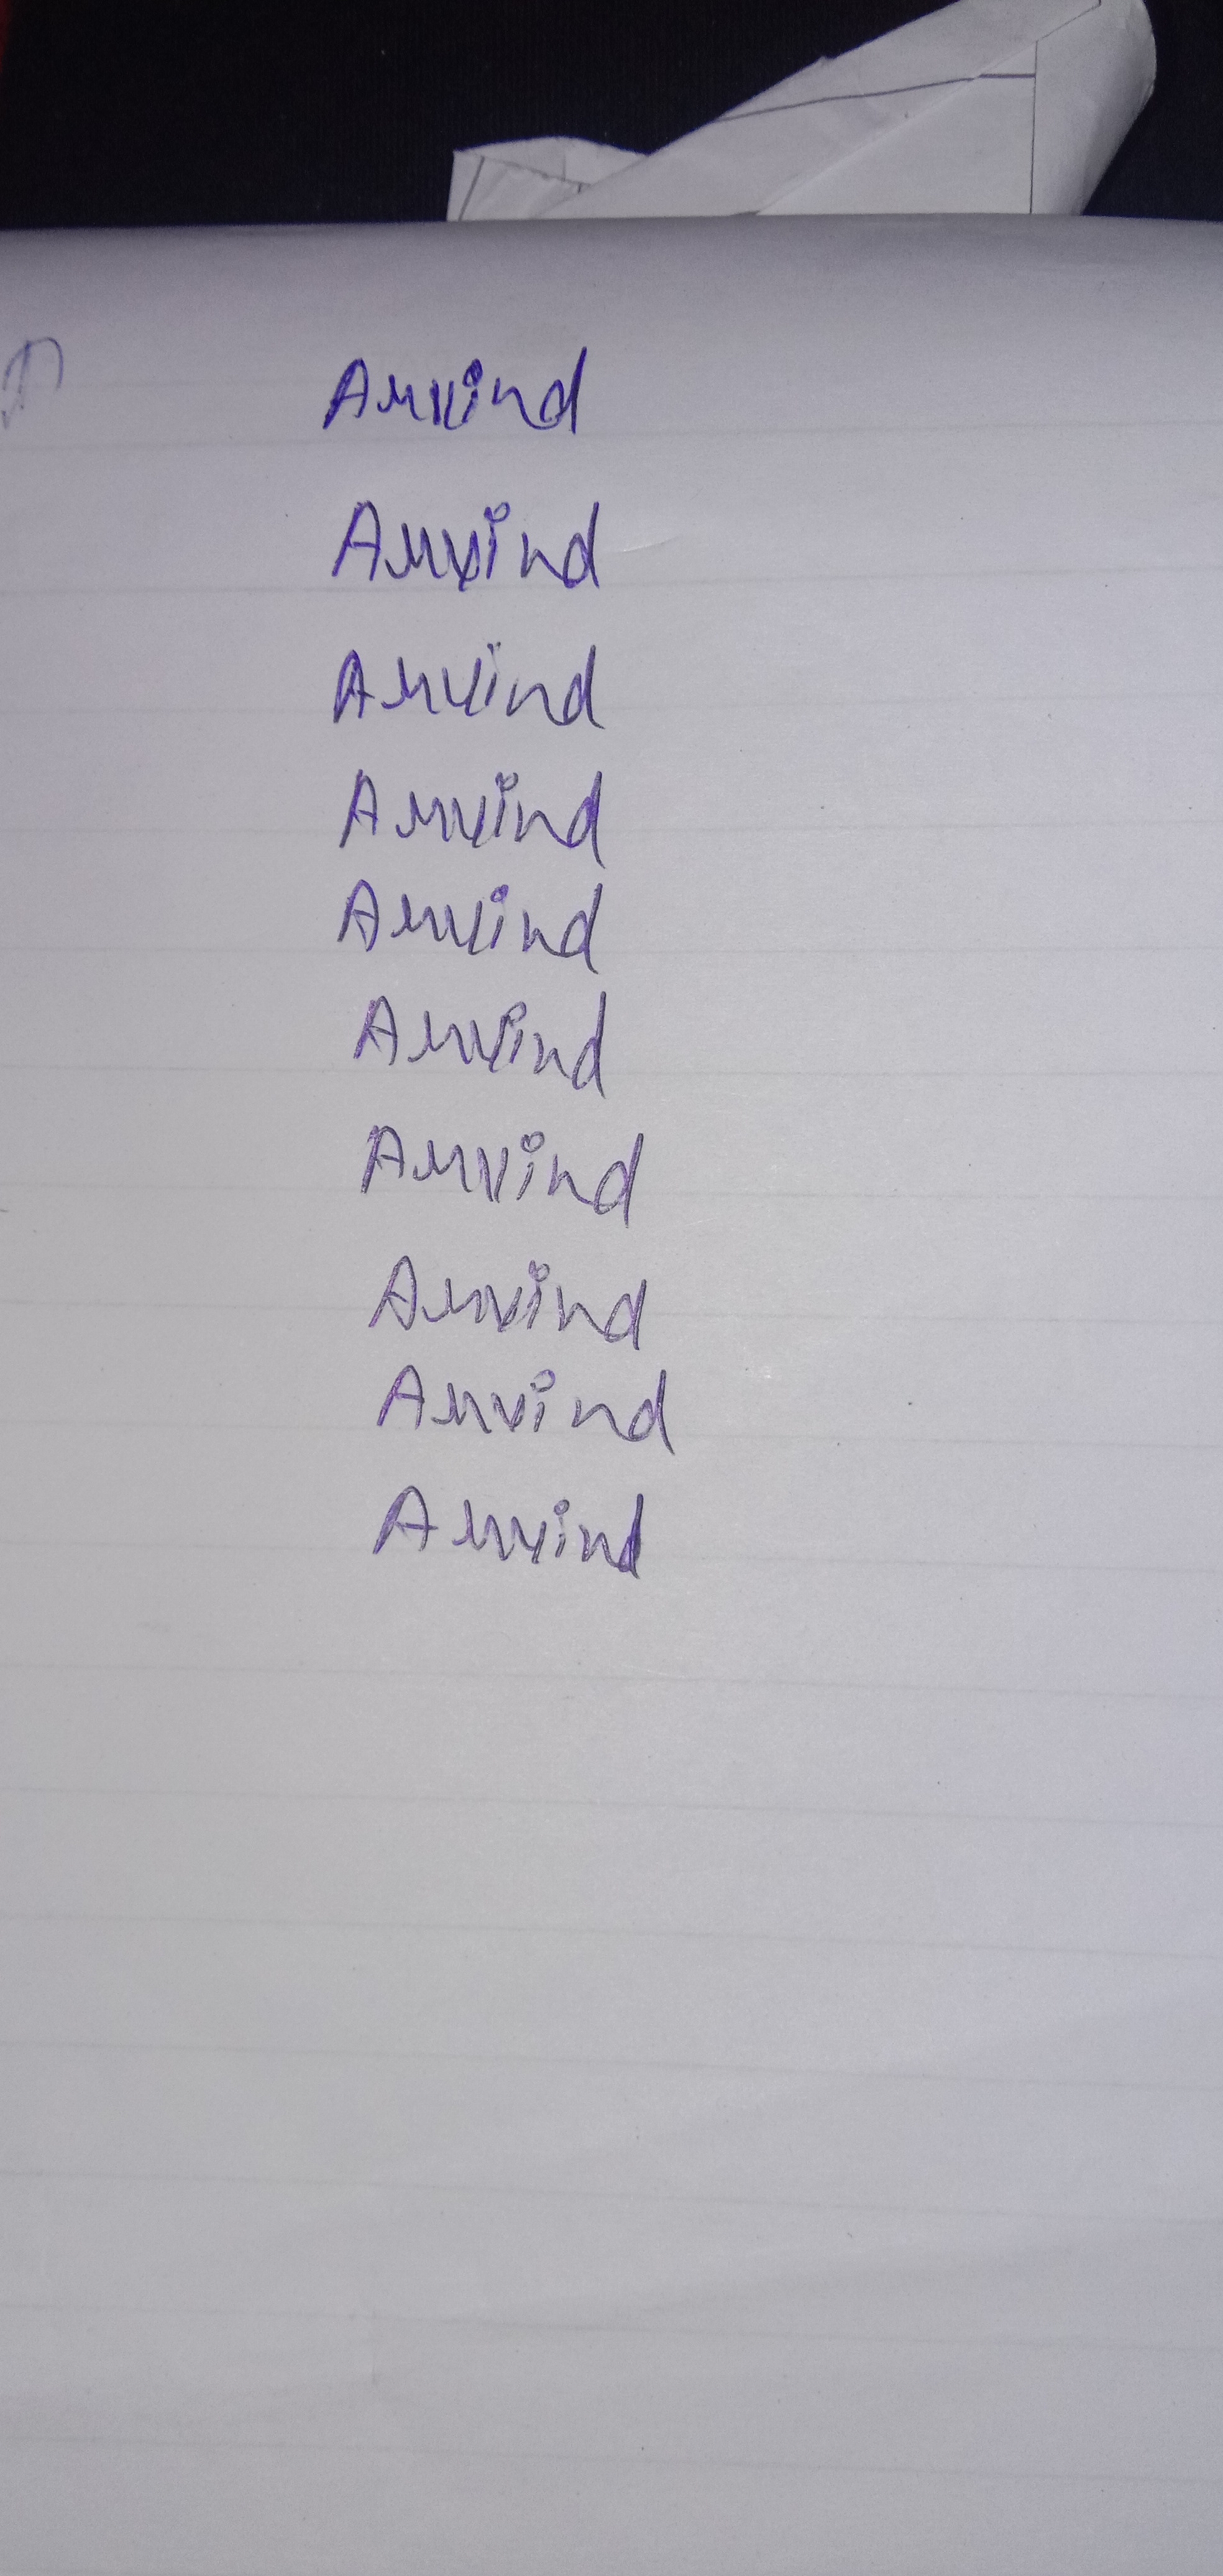 Arvind
Arvind
Arvind
Arvind
Arvind
Arvind
Arvind
Arvind
Arvind
Arvind